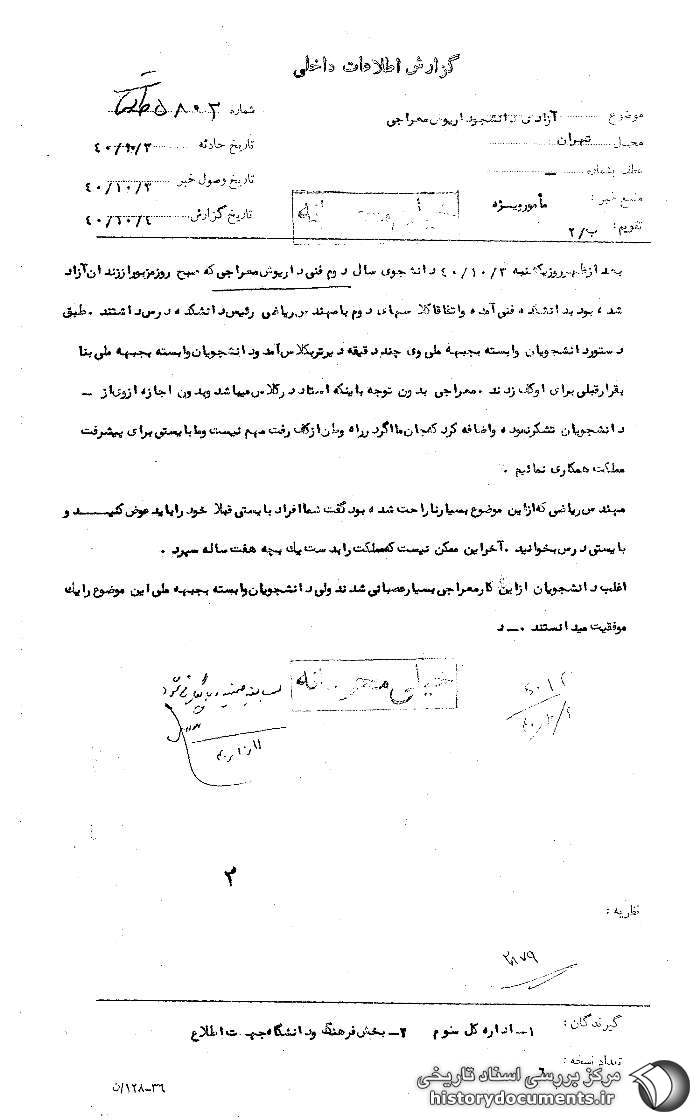 گزارش اطلاعات داخلی
موضوع آزادی دانشجو داریوش معراجی
شماره ۵۸۰۲
محل تهران
تاریخ حادثه ۴۰/۱۰/۳
عطف بشماره ــ
تاریخ وصول خبر ۴۰/۱۰/۳
منبع خبر: مأمور ویژه
تاریخ گزارش ۴۰/۱۰/۴
تقویم: ب/۲
خیلی محرمانه
بعد از ظهر روز یکشنبه ۴۰/۱۰/۳ دانشجوی سال دوم فنی داریوش معراجی که صبح روز مزبور از زندان آزاد
شده بود بدانشکده فنی آمده و اتفاقا کلاسهای دوم با مهندس ریاضی رئیس دانشکده درس داشتند . طبق
دستور دانشجویان وابسته بجبهه ملی وی چند دقیقه دیرتر بکلاس آمد و دانشجویان وابسته بجبهه ملی بنا
بقرار قبلی برای او کف زدند . معراجی بدون توجه باینکه استاد در کلاس میباشد و بدون اجازه از وی از ــ
دانشجویان تشکر نموده و اضافه کرد که جان ما اگر در راه وطن از کف رفت مهم نیست و ما بایستی برای پیشرفت
مملکت همکاری نمائیم .
مهندس ریاضی که از این موضوع بسیار ناراحت شده بود گفت شما افراد بایستی قبلا خود را باید عوض کنید و
بایستی درس بخوانید . آخر این ممکن نیست که مملکت را بدست یک بچه هفت ساله سپرد .
اغلب دانشجویان از این کار معراجی بسیار عصبانی شدند ولی دانشجویان وابسته بجبهه ملی این موضوع را یک
موفقیت میدانستند . ــ د
خیلی محرمانه
۲
نظریه :
۲۸۷۹
گیرندگان : ۱ــ اداره کل سوم ۲ــ بخش فرهنگ و دانشگاه جهت اطلاع
تعداد نسخه :
۳۶ــ۱۲۸/ن
مرکز بررسی اسناد تاریخی
historydocuments.ir